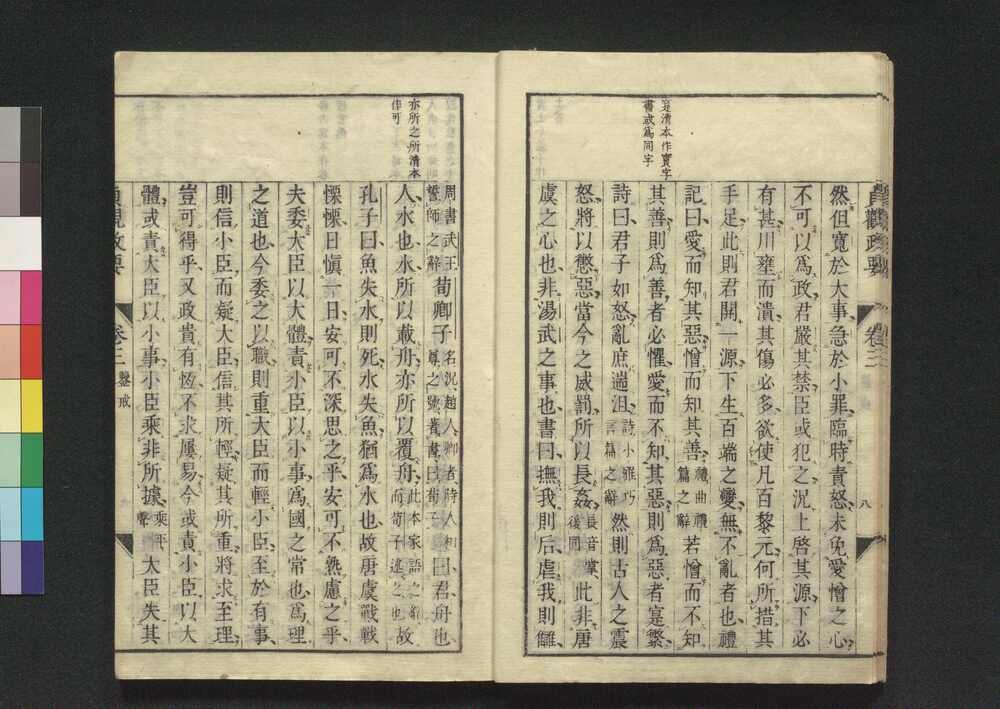 寔清本作實字
書或為同字
貞觀政要 卷三 八
然但寬於大事急於小罪臨時責怒未免愛憎之心
不可以爲政君嚴其禁臣或犯之況上啓其源下必
有甚川壅而潰其傷必多欲使凡百黎元何所措其
手足此則君開一源下生百端之變無不亂者也禮
記曰愛而知其惡憎而知其善禮曲禮篇之辭若憎而不知
其善則爲善者必懼愛而不知其惡則爲惡者寔繁
詩曰君子如怒亂庶遄沮詩小雅巧言篇之辭然則古人之震
怒將以懲惡當今之威罰所以長姦長音掌後同此非唐
虞之心也非湯武之事也書曰撫我則后虐我則讎
亦所之所清本
作可
周書武王誓師之辭荀卿子名況趙人卿者時人相尊之號著書曰荀子曰君舟也
人水也水所以載舟亦所以覆舟此本家語之辭而荀子述之也故
孔子曰魚失水則死水失魚猶爲水也故唐虞戰戰
慄慄日愼一日安可不深思之乎安可不熟慮之乎
夫委大臣以大體責小臣以小事爲國之常也爲理
之道也今委之以職則重大臣而輕小臣至於有事
則信小臣而疑大臣信其所輕疑其所重將求至理
豈可得乎又政貴有恆不求屢易今或責小臣以大
體或責大臣以小事小臣乘非所據乘平聲大臣失其
貞觀政要 卷三 鑒戒